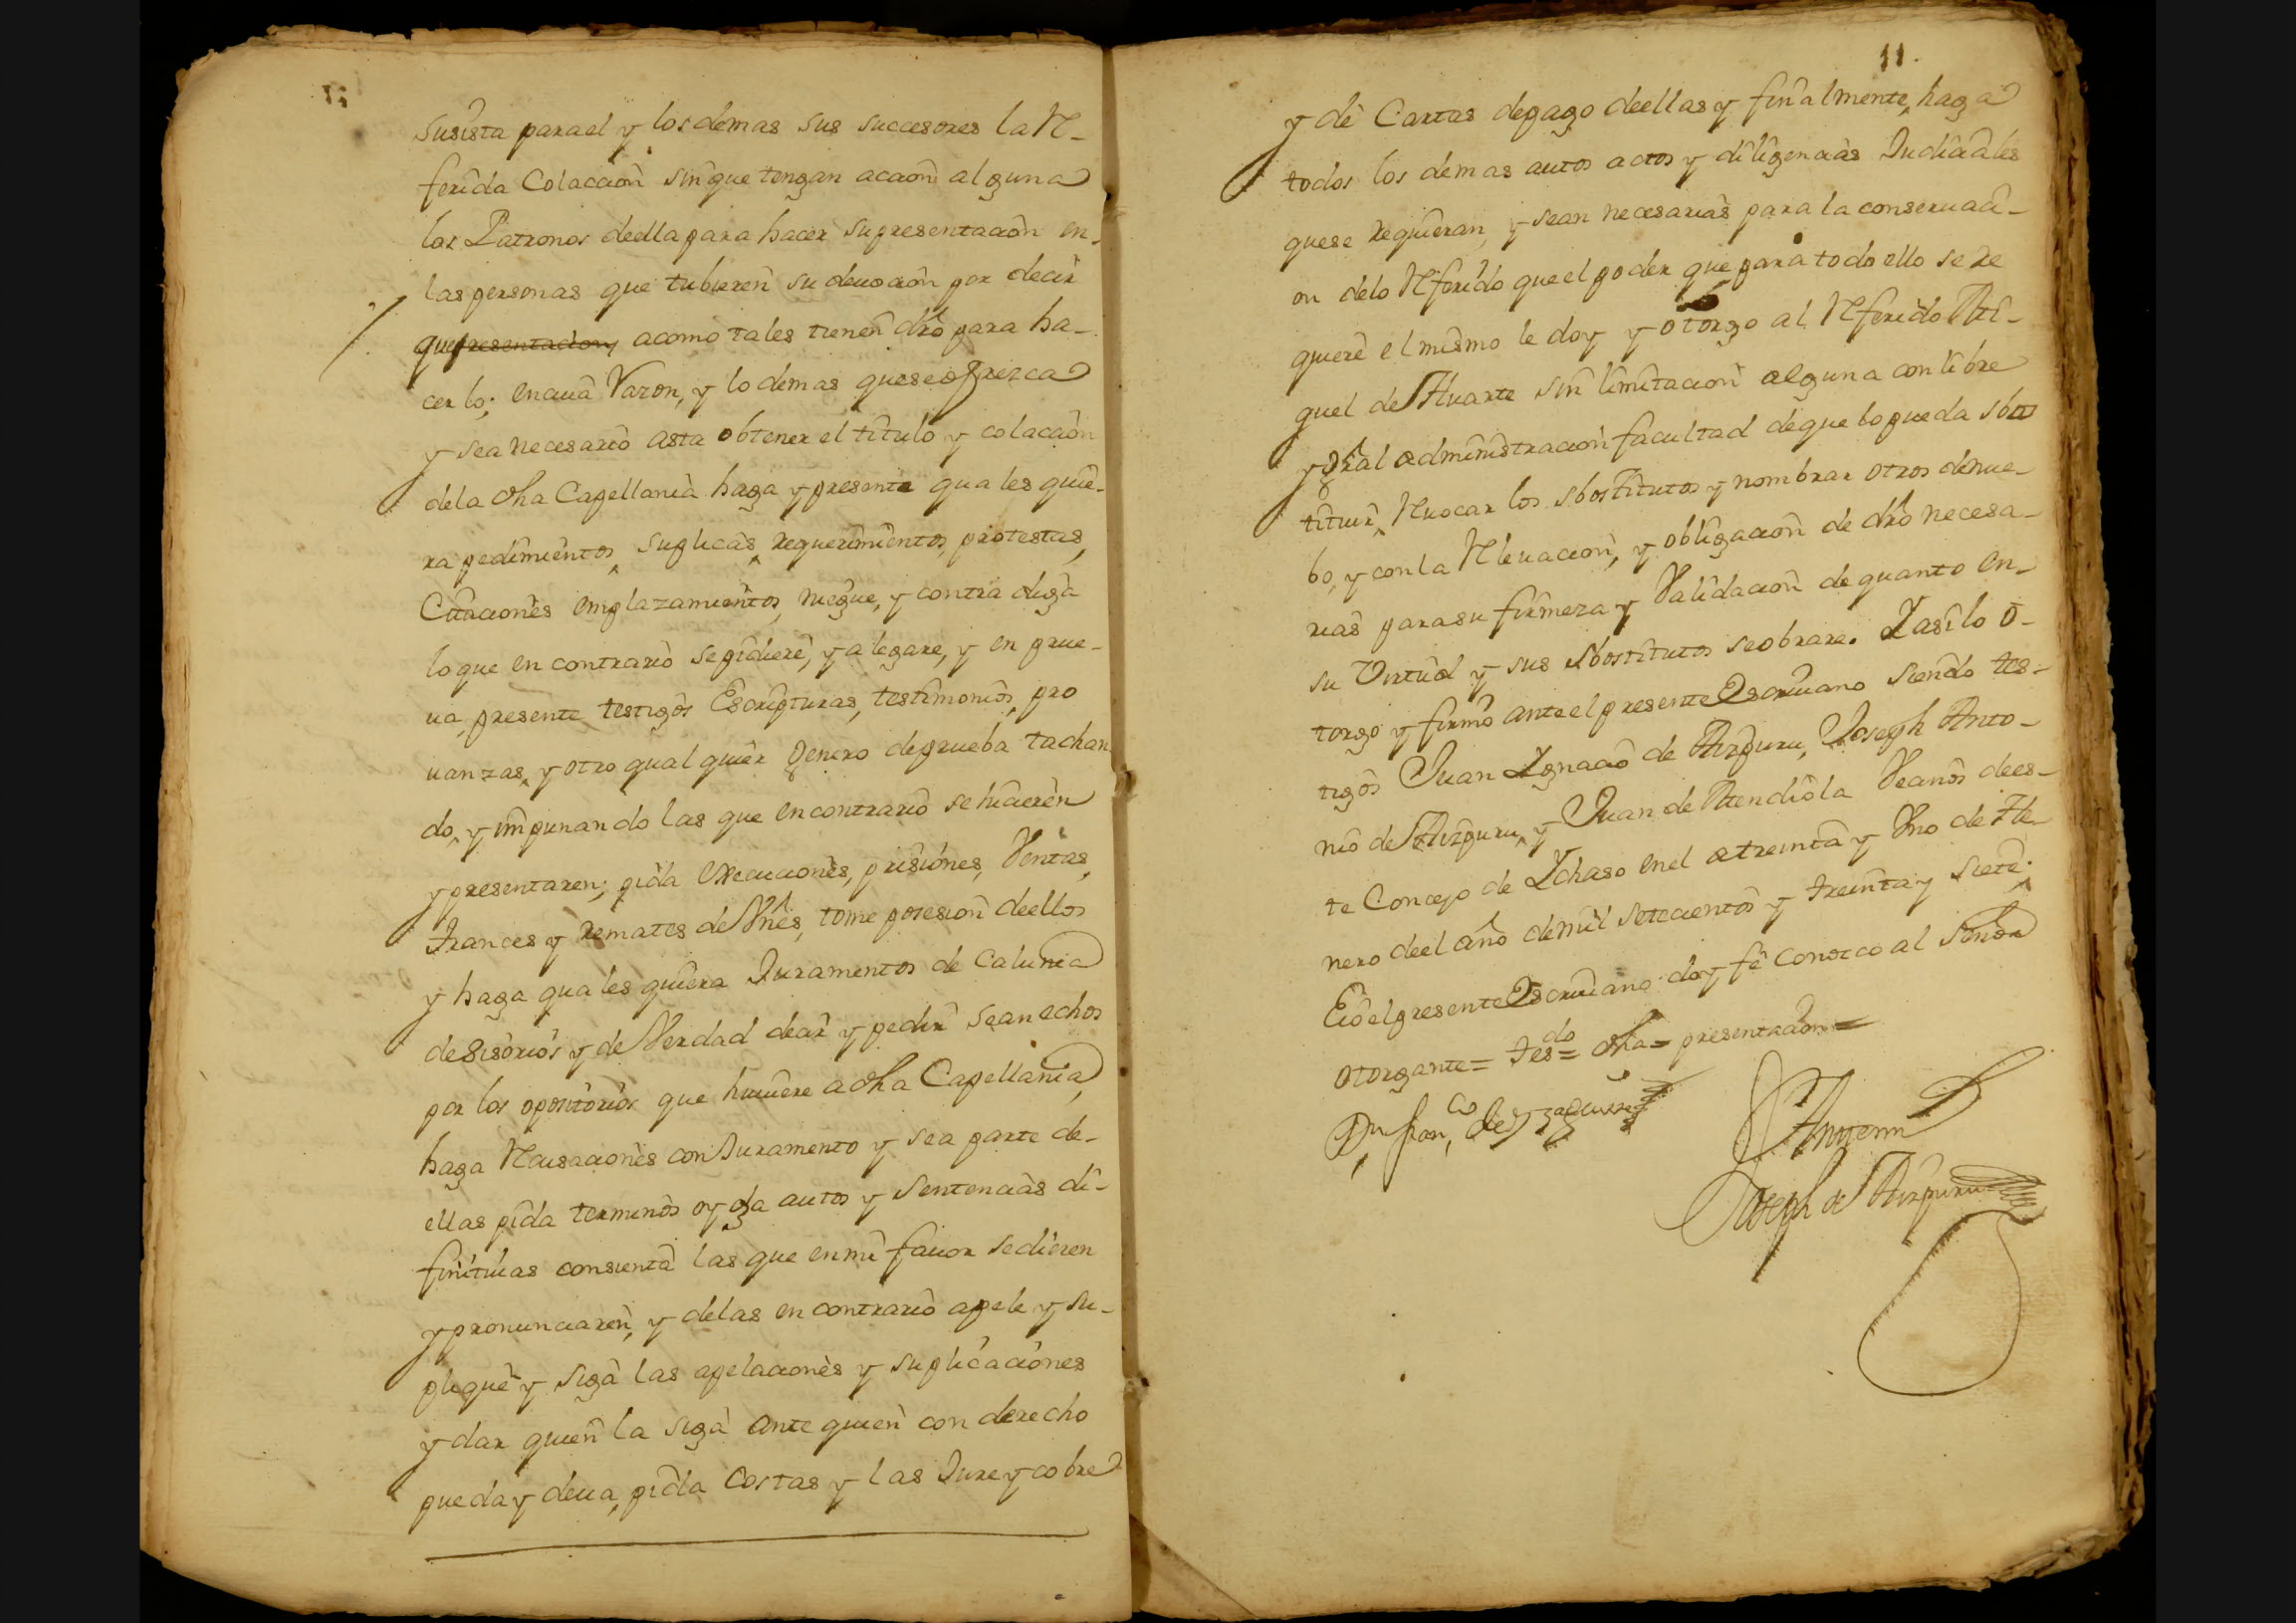 Susista para el y los demas sus succesores la Re-
ferida Colacion sin que tengan acaon alguna
los Patronos de ella para hacer su presentacion en
las personas que tubieren su deuocion por decir
que presentacion, a como tales tienen dro para ha-
cerlo; en cuia Razon, y lo demas que se ofrezca
y sea necesario asta obtener el titulo y colacion
de la dha Capellania haga y presente quales quie-
ra pedimientos, suplicas, requerimientos, protestas,
Citaciones emplazamientos, niegue, y contra diga
lo que en contrario se pidiere, y alegare, y en prue-
ua, presente testigos Escripturas, testimonios, pro
uanzas, y otro qual quier genero de prueba tachan
do, y impunando las que en contrario se hicieren
y presentaren; pida execuciones, prisiones, Ventas,
trances y remates de Vnes, tome posesion de ellos
y haga quales quiera Juramentos de Calunia
desisorios y de Verdad decir y pedir sean echos
por los opositorios que huuiere a dha Capellania,
haga Recusaciones con Juramento y sea parte de-
ellas pida terminos oyga autos y Sentencias di-
finitiuas consienta las que en mi fauor se dieren
y pronunciaren, y de las en contrario apele y su-
plique y siga las apelaciones y suplicaciones
y dar quien la siga ante quien con derecho
pueda y deua, pida Costas y las Jure y cobre
11.
y dè Cartas de pago de ellas y finalmente, haga
todos los demas autos actos y diligencias Judiciales
que se requieran, y sean necesarias para la conseruaci-
on de lo Referido que el poder que para todo ello se re
quiere el mismo le doy y otorgo al Referido Mi-
guel de Huarte sin limitacion alguna con libre
y gral administracion facultad de que lo pueda sbos
tituir, Reuocar los sbostitutos y nombrar otros de nue-
bo, y con la Releuacion, y obligacion de dro necesa-
rias para su firmeza y Validacion de quanto en
su Virtud y sus sbostitutos se obrare. Y asi lo o-
torgo y firmo ante el presente Escriuano siendo tes-
tigos Juan Ygnacio de Aizpuru, Joseph Anto-
nio de Aizpuru, y Juan de Mendiola Vecinos de es-
te Concejo de Ychaso en el a treinta y Vno de He-
nero de el año de mil setecientos y treinta y siete;
E io el presente Escriuano doy fe conozco al Señor
otorgante = Tesdo = dha = presentacion =
Dn Fran,co de
Antemi
Joseph de Aizpuru